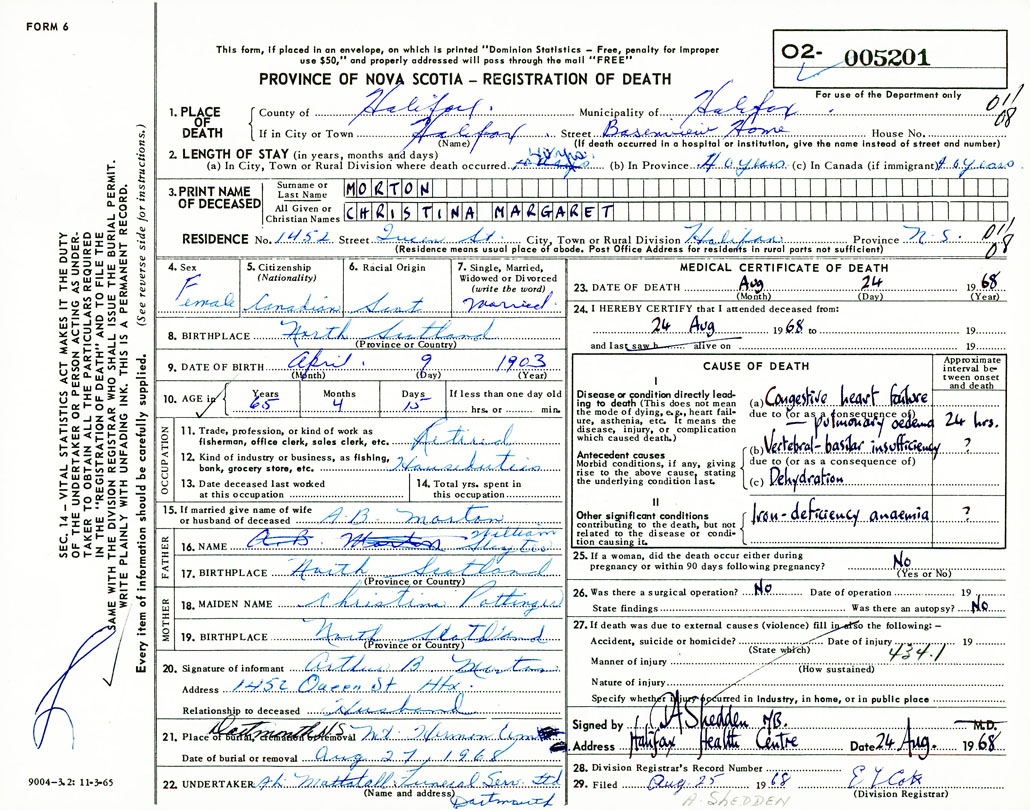 FORM 6
This form, if placed in an envelope, on which is printed "Dominion Statistics – Free, penalty for improper
use $50," and properly addressed will pass through the mail "FREE"
O2- 005201
PROVINCE OF NOVA SCOTIA – REGISTRATION OF DEATH
For use of the Department only
1. PLACE OF DEATH
County of Halifax. Municipality of Halifax 011
08
If in City or Town Halifax. Street Basinview Home House No.
(Name) (If death occurred in a hospital or institution, give the name instead of street and number)
2. LENGTH OF STAY (in years, months and days)
(a) In City, Town or Rural Division where death occurred 40 yrs. (b) In Province 40 years (c) In Canada (if immigrant) 40 years
3. PRINT NAME OF DECEASED
Surname or Last Name MORTON
All Given or Christian Names CHRISTINA MARGARET
RESIDENCE No. 1452 Street Queen St. City, Town or Rural Division Halifax Province N.S. 011
08
(Residence means usual place of abode. Post Office Address for residents in rural parts not sufficient)
4. Sex Female
5. Citizenship (Nationality) Canadian
6. Racial Origin Scot
7. Single, Married, Widowed or Divorced (write the word) married
8. BIRTHPLACE North Scotland
(Province or Country)
9. DATE OF BIRTH April 9 1903
(Month) (Day) (Year)
10. AGE in Years 65 Months 4 Days 15 If less than one day old hrs. or min.
OCCUPATION
11. Trade, profession or kind of work as fisherman, office clerk, sales clerk, etc. Retired
12. Kind of industry or business, as fishing, bank, grocery store, etc. Houseduties
13. Date deceased last worked at this occupation
14. Total yrs. spent in this occupation
15. If married give name of wife or husband of deceased A.B. Morton
FATHER
16. NAME A.B. Morton William
17. BIRTHPLACE North Scotland
(Province or Country)
MOTHER
18. MAIDEN NAME Christine Pottinger
19. BIRTHPLACE North Scotland
(Province or Country)
20. Signature of informant Arthur B Morton
Address 1452 Queen St Hfx
Relationship to deceased Husband
21. Place of burial, cremation or removal Dartmouth N.S. Mt. Hermon
Date of burial or removal Aug 27, 1968
22. UNDERTAKER Mattatall Funeral Serv. Ltd
(Name and address) Dartmouth
MEDICAL CERTIFICATE OF DEATH
23. DATE OF DEATH Aug 24 1968
(Month) (Day) (Year)
24. I HEREBY CERTIFY that I attended deceased from:
24 Aug 1968 to 19
and last saw h alive on 19
CAUSE OF DEATH
Approximate interval between onset and death
I
Disease or condition directly leading to death (This does not mean the mode of dying, e.g., heart failure, asthenia, etc. It means the disease, injury, or complication which caused death.)
(a) Congestive heart failure
due to (or as a consequence of)
— pulmonary oedema 24 hrs.
Antecedent causes
Morbid conditions, if any, giving rise to the above cause, stating the underlying condition last.
(b) Vertebral-basilar insufficiency ?
due to (or as a consequence of)
(c) Dehydration
II
Other significant conditions
contributing to the death, but not related to the disease or condition causing it.
Iron-deficiency anaemia ?
25. If a woman, did the death occur either during pregnancy or within 90 days following pregnancy? No
(Yes or No)
26. Was there a surgical operation? No Date of operation 19
State findings Was there an autopsy? No
27. If death was due to external causes (violence) fill in also the following: –
Accident, suicide or homicide? Date of injury 19
(State which) 434.1
Manner of injury
(How sustained)
Nature of injury
Specify whether injury occurred in Industry, in home, or in public place
Signed by A Shedden MB. M.D.
Address Halifax Health Centre Date 24 Aug. 1968
28. Division Registrar's Record Number
29. Filed Aug 25 1968
(Division Registrar)
A. SHEDDEN
SEC. 14 – VITAL STATISTICS ACT MAKES IT THE DUTY
OF THE UNDERTAKER OR PERSON ACTING AS UNDER-
TAKER TO OBTAIN ALL THE PARTICULARS REQUIRED
IN THE "REGISTRATION OF DEATH" AND TO FILE THE
SAME WITH THE DIVISION REGISTRAR WHO SHALL ISSUE THE BURIAL PERMIT.
WRITE PLAINLY WITH UNFADING INK. THIS IS A PERMANENT RECORD.
Every item of information should be carefully supplied. (See reverse side for instructions.)
9004-3.2: 11-3-65